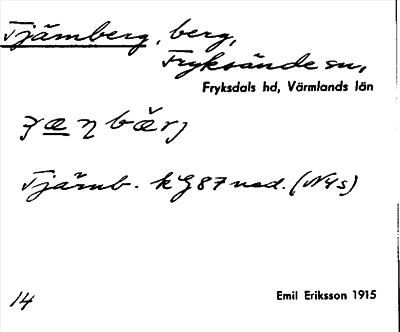 Tjämberg, berg,
Fryksände sn,
Fryksdals hd, Värmlands län
Tjärnb. kG87ned. (N4s)
14
Emil Eriksson 1915